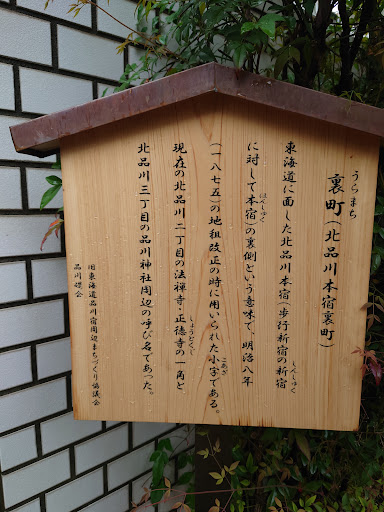 うらまち
裏町(北品川本宿裏町)
東海道に面した北品川本宿(歩行新宿の新宿
しんしゅく
に対して本宿)の裏側という意味で、明治八年
ほんしゅく
(一八七五)の地租改正の時に用いられた小字である。
こあざ
現在の北品川二丁目の法禅寺・正徳寺の一角と
しょうとくじ
北品川三丁目の品川神社周辺の呼び名であった。
旧東海道品川宿周辺まちづくり協議会
品川蝶会